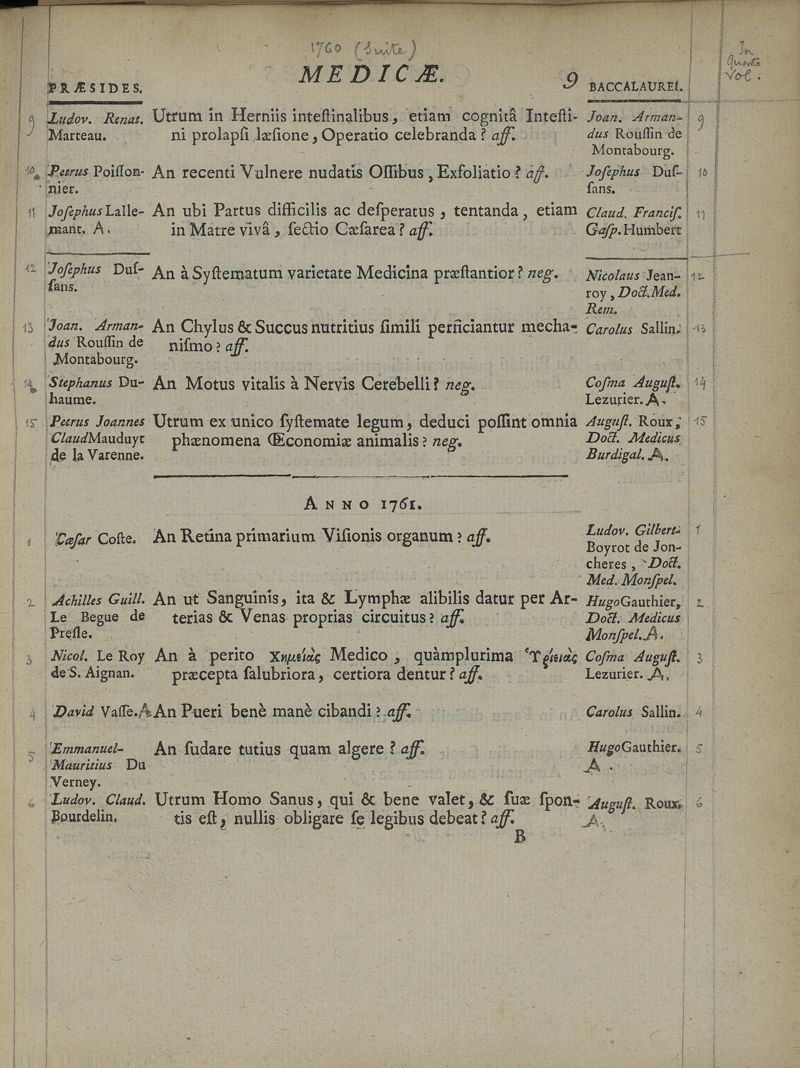 1760 (Suite)
In
Quarto
Vol.
MEDICÆ. 9
PRÆSIDES. BACCALAUREI.
9 Ludov. Renat. Utrum in Herniis inteſtinalibus, etiam cognitâ Inteſti- Joan. Arman- 9
Marteau. ni prolapſi læſione, Operatio celebranda? aff. dus Rouſſin de
Montabourg.
10 Petrus Poiſſon- An recenti Vulnere nudatis Oſſibus, Exfoliatio? aff. Joſephus Duſ- 10
nier. ſans.
11 Joſephus Lalle- An ubi Partus difficilis ac deſperatus, tentanda, etiam Claud. Franciſ. 11
mant. A. in Matre vivâ, ſectio Cæſarea? aff. Gaſp. Humbert
12 Joſephus Duſ- An à Syſtematum varietate Medicina præſtantior? neg. Nicolaus Jean- 12
ſans. roy, Doct. Med.
Rem.
13 Joan. Arman- An Chylus & Succus nutritius ſimili perficiantur mecha- Carolus Sallin. 13
dus Rouſſin de niſmo? aff.
Montabourg.
14 Stephanus Du- An Motus vitalis à Nervis Cerebelli? neg. Coſma Auguſt. 14
haume. Lezurier. A.
15 Petrus Joannes Utrum ex unico ſyſtemate legum, deduci poſſint omnia Auguſt. Roux, 15
Claud Mauduyt phænomena Œconomiæ animalis? neg. Doct. Medicus
de la Varenne. Burdigal. A.
ANNO 1761.
1 Cæſar Coſte. An Retina primarium Viſionis organum? aff. Ludov. Gilbert. 1
Boyrot de Jon-
cheres, Doct.
Med. Monſpel.
2 Achilles Guill. An ut Sanguinis, ita & Lymphæ alibilis datur per Ar- Hugo Gauthier, 2
Le Begue de terias & Venas proprias circuitus? aff. Doct. Medicus
Preſle. Monſpel. A.
3 Nicol. Le Roy An à perito Χημείάς Medico, quàmplurima Ὑγίειάς Coſma Auguſt. 3
de S. Aignan. præcepta ſalubriora, certiora dentur? aff. Lezurier. A.
4 David Vaſſe. A An Pueri benè manè cibandi? aff. Carolus Sallin. 4
5 Emmanuel- An ſudare tutius quam algere? aff. Hugo Gauthier. 5
Mauritius Du A.
Verney.
6 Ludov. Claud. Utrum Homo Sanus, qui & bene valet, & ſuæ ſpon- Auguſt. Roux. 6
Bourdelin. tis eſt, nullis obligare ſe legibus debeat? aff. A.
B